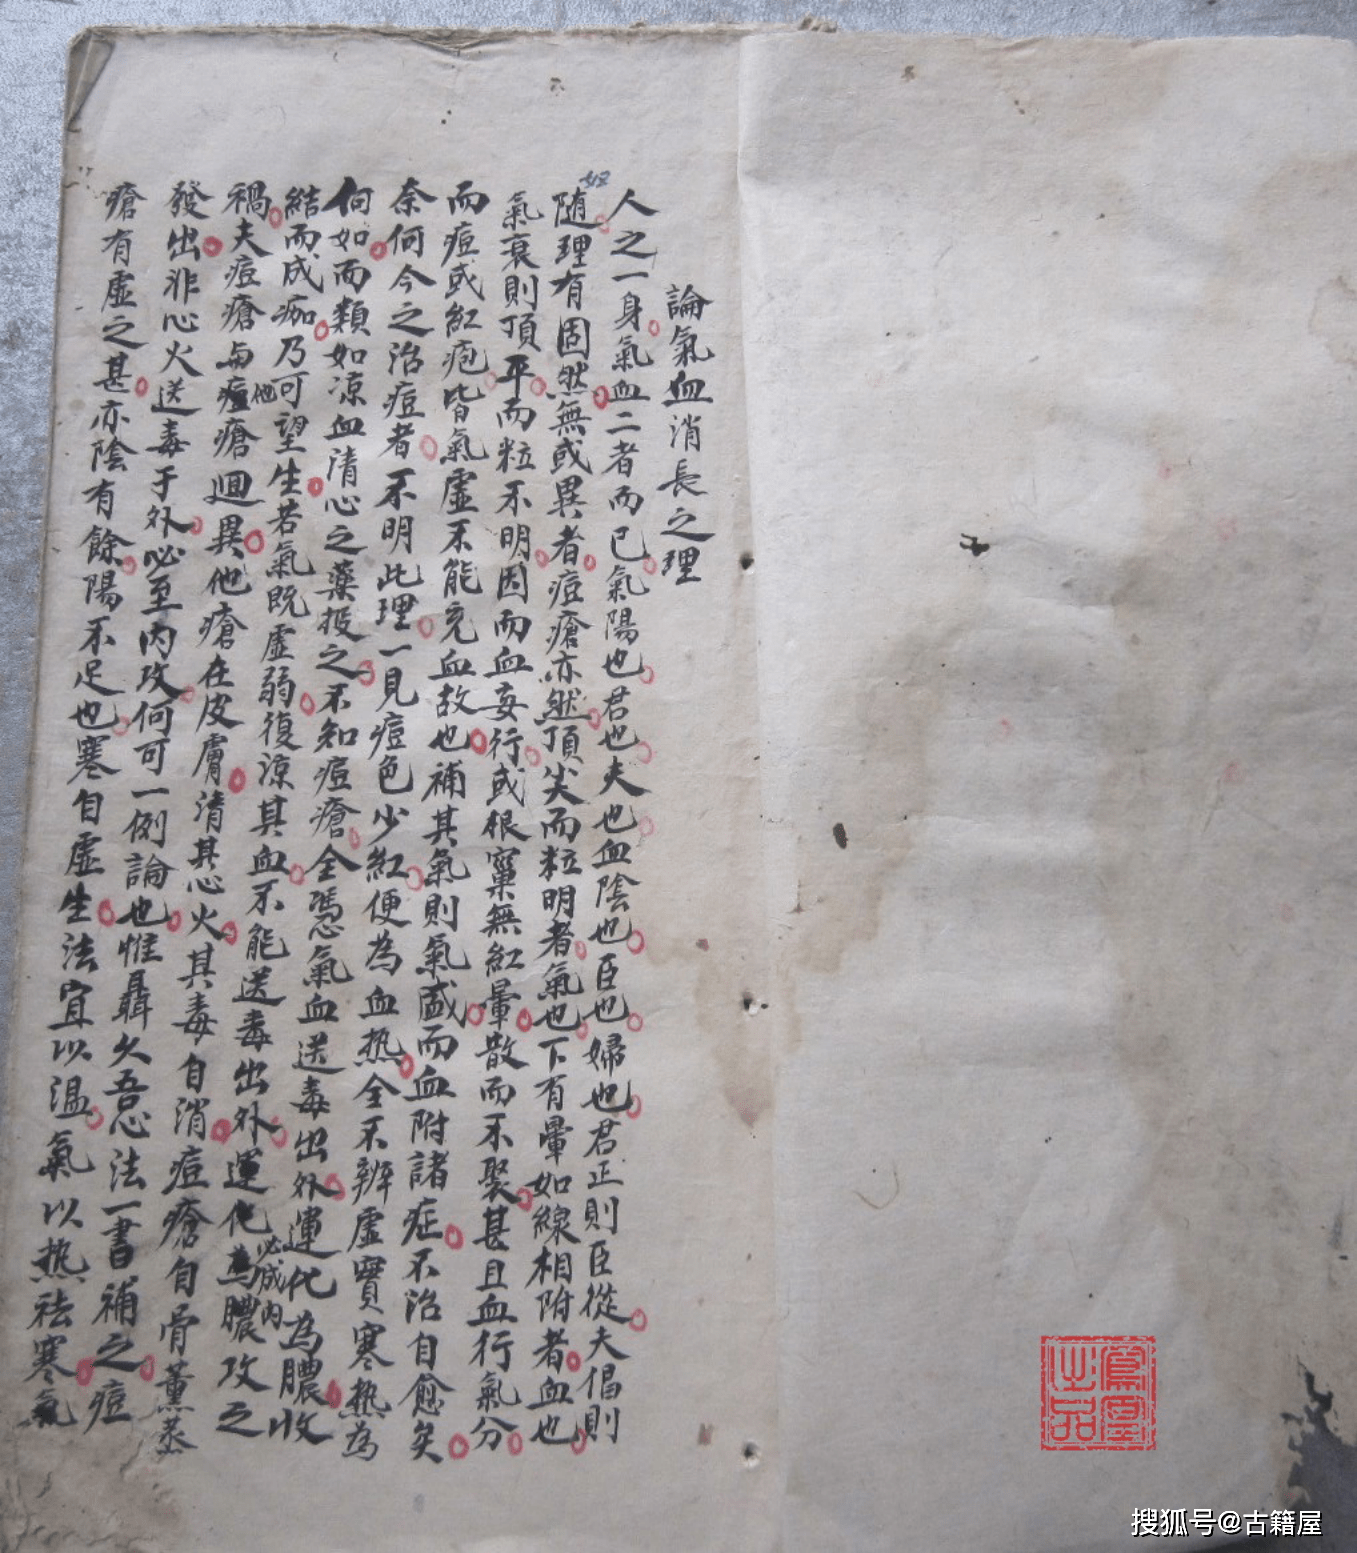 論氣血消長之理
人之一身氣血二者而已氣陽也君也夫也血陰也臣也婦也君正則臣從夫倡則
隨理有固然無或異者痘瘡亦然頂尖而粒明者氣也下有暈如線相附者血也
氣衰則頂平而粒不明因而血妄行或根窠無紅暈散而不聚甚且血行氣分
而痘或紅疱皆氣虛不能充血故也補其氣則氣盛而血附諸症不治自愈矣
奈何今之治痘者不明此理一見痘色少紅便為血热全不辨虛實寒热為
何如而類如凉血清心之藥投之不知痘瘡全憑氣血送毒出外運化為膿收
結而成痂乃可望生若氣既虛弱復涼其血不能送毒出外運化為膿必成內攻之
禍夫痘瘡与他瘡迥異他瘡在皮膚清其心火其毒自消痘瘡自骨薰蒸
發出非心火送毒于外必至内攻何可一例論也惟聶久吾心法一書補之痘
瘡有虛之甚亦陰有餘陽不足也寒自虛生法宜以温氣以热祛寒氣
鳳凰出品
搜狐号@古籍屋